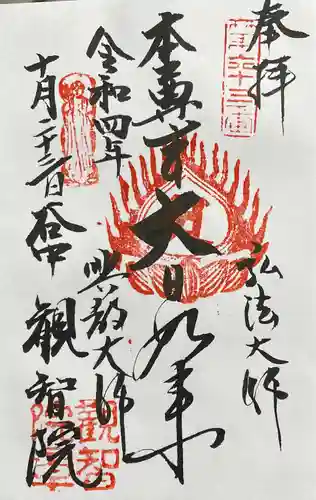 奉拝
弘法大師
本尊 大日如来
興教大師
令和四年
十月二十三日
観智院
観智